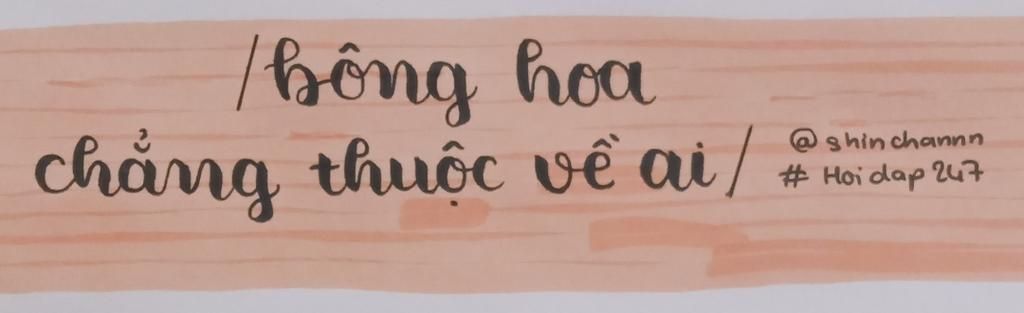 /bông hoa
chẳng thuộc về ai/
@shinchannn
# Hoidap247